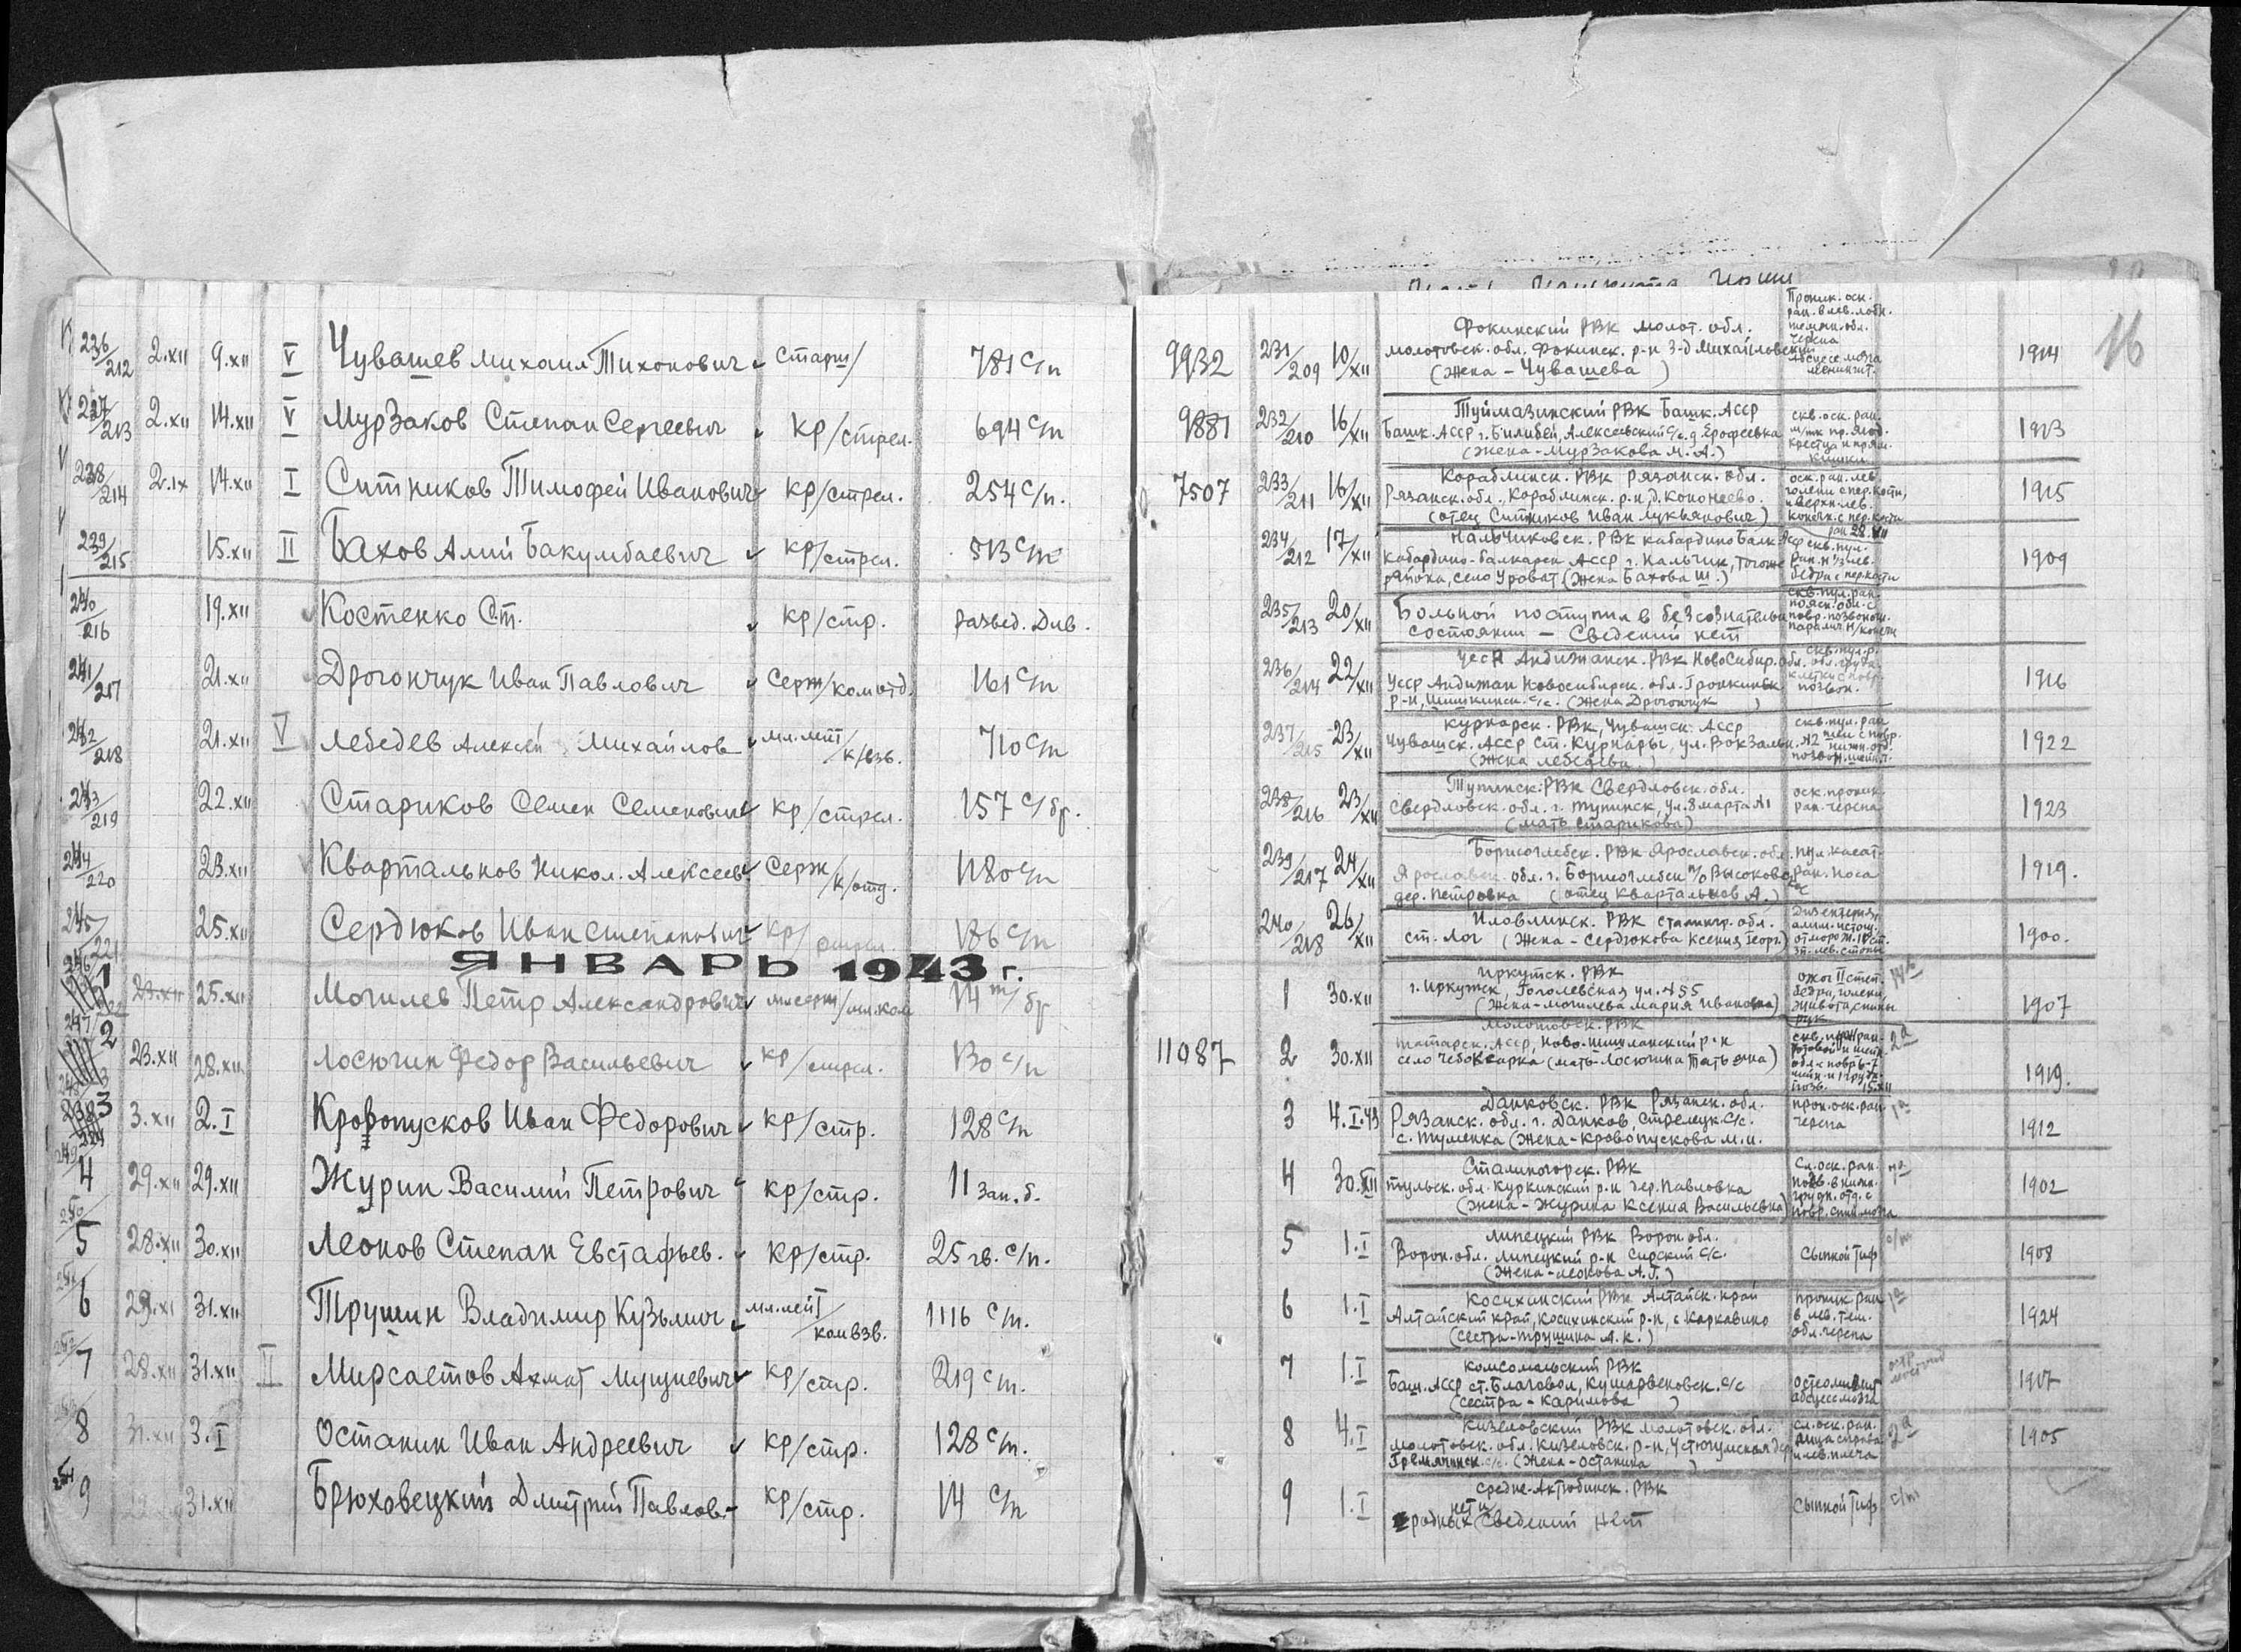 236/212 2.XII 9.XII V Чувашев Михаил Тихонович старш/ 781 с/п
227/213 2.XII 14.XII V Мурзаков Степан Сергеевич кр/стрел. 694 с/п
238/214 2.IX 14.XII I Ситников Тимофей Иванович кр/стрел. 254 с/п.
239/215 15.XII II Бахов Алий Бакумбаевич кр/стрел. 513 с/п
240/216 19.XII Костенко Ст. кр/стр. развед. Див.
241/217 21.XII Дрогончук Иван Павлович Серж/ком отд. 161 с/п
242/218 21.XII V Лебедев Алексей Михайлов мл.лейт/к/взв. 710 с/п
243/219 22.XII Стариков Семен Семенович кр/стрел. 157 с/бр.
244/220 23.XII Квартальнов Никол. Алексеев. Серж/к/отд. 1180 с/п
245/221 25.XII Сердюков Иван Степанович кр/ 186 с/п
ЯНВАРЬ 1943 г.
1 23.XII 25.XII Могилев Петр Александрович 14 т/бр
2 23.XII 28.XII Лосюгин Федор Васильевич кр/стрел. 130 с/п
3 3.XII 2.I Кровопусков Иван Федорович кр/стр. 128 с/п
4 29.XII 29.XII Журин Василий Петрович кр/стр. 11 зап. б.
5 28.XII 30.XII Леонов Степан Евстафьев. кр/стр. 25 гв. с/п.
6 29.XI 31.XII Трушин Владимир Кузьмич мл.лейт/ком взв. 1116 с/п.
7 28.XII 31.XII II Мирсаетов Ахмат кр/стр. 219 с/п.
8 31.XII 3.I Останин Иван Андреевич кр/стр. 128 с/п.
9 31.XII Брюховецкий Дмитрий Павлов. кр/стр. 14 с/п
16
Проник. оск.
ран. в лев. лобн.
темен. обл.
черепа
Абсцесс мозга
менингит.
9932 231/209 10/XII Фокинский РВК Молот. обл.
Молотовск. обл. Фокинск. р-н з-д Михайловский
(жена - Чувашева ) 1914
9881 232/210 16/XII Туймазинский РВК Башк. АССР
Башк. АССР г. Билибей, Алексеевский с/с. д. Ерофеевка
(жена - Мурзакова М. А.) 1923
скв. оск. ран.
7507 233/211 16/XII Кораблинск. РВК Рязанск. обл.
Рязанск. обл., Кораблинск. р-н, д. Кононеево.
(отец Ситников Иван Лукьянович) 1915
оск. ран. лев.
голени с пер. кости,
234/212 17/XII Нальчиковск. РВК Кабардино Балк. АССР
Кабардино-балкарск АССР г. Нальчик,
района, село Уроват (жена Бахова Ш.) 1909
скв. пул.
бедра с пер. кости
235/213 20/XII Больной поступил в безсознательн
состоянии - Сведений нет
скв. пул. ран.
236/214 22/XII Андижанск. РВК Новосибир. обл.
УССР Андижан Новосибирск. обл.
р-н, с/с. (жена Дрогончук ) 1916
237/215 23/XII Курнарск. РВК, Чувашск. АССР
Чувашск. АССР ст. Курнары, ул. Вокзальн. №2
(жена Лебедева ) 1922
скв. пул. ран
238/216 23/XII РВК Свердловск. обл.
Свердловск. обл. г. ул. 8 марта №1
(мать Старикова) 1923
оск. проник.
ран. черепа
239/217 24/XII Борисоглебск. РВК Ярославск. обл.
Ярославск. обл. г. Борисоглебск п/о Высоково
дер. Петровка (отец Квартальнов А.) 1919.
пул. касат.
ран. носа
240/218 26/XII Иловлинск. РВК Сталингр. обл.
ст. Лог (жена - Сердюкова Ксения Георг.) 1900.
дизентерия,
1 30.XII Иркутск. РВК
г. Иркутск, Гоголевская ул. №55
(жена - Могилева Мария Ивановна) 1907
ожог II степ.
бедра, голени,
живота, спины
рук
11087 2 30.XII Молотовск. РВК
Татарск. АССР, Ново-шишминский р-н
село Чебоксарка (мать - Лосюгина Татьяна) 1919.
15.XII
3 4.I.43 Данковск. РВК Рязанск. обл.
Рязанск. обл. г. Данков, Стрелецк. с/с.
с. Туменка (жена - Кровопускова М. И. 1912
прон. оск. ран.
черепа
4 30.XII Сталиногорск. РВК
Тульск. обл. Куркинский р-н дер. Павловка
(жена - Журина Ксения Васильевна) 1902
сл. оск. ран.
5 1.I Липецкий РВК Ворон. обл.
Ворон. обл. Липецкий р-н Сирский с/с.
(жена - Леонова А. Г.) 1908
сыпной тиф
6 1.I Косихинский РВК Алтайск. край
Алтайский край, Косихинский р-н, с Каркавино
(сестра - Трушина А. К.) 1924
проник ран
в лев. тем.
обл. черепа
7 1.I Комсомольский РВК
Баш. АССР ст. Благовои, Кушарвековск. с/с
(сестра - Каримова ) 1907
остеомиелит
абсцесс мозга
8 4.I Кизеловский РВК Молотовск. обл.
Молотовск. обл. Кизеловск. р-н,
Гремячинск. с/с. (жена - Останина ) 1905
сл. оск. ран.
лица справа
и лев. плеча
9 1.I Средне-Актюбинск. РВК
родных нет и сведений нет
сыпной тиф